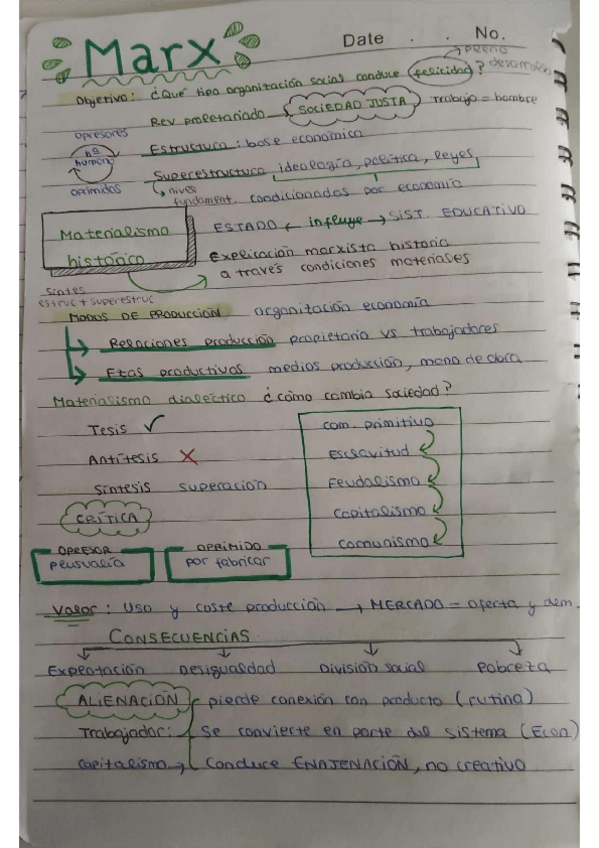 Marx
Date . . No.
pleno
desarrollo
Objetivo: ¿Qué tipo organización social conduce felicidad?
Rev proletariado → SOCIEDAD JUSTA Trabajo = hombre
opresores
Hª humana
oprimidos
Estructura: base económica
Superestructura ideología, política, leyes
↳ nivel fundament. condicionados por economía
Materialismo histórico
ESTADO ← influye → SIST. EDUCATIVO
Explicación marxista historia
a través condiciones materiales
síntes
estruc + superestruc
MODOS DE PRODUCCIÓN organización economía
Relaciones producción propietario vs trabajadores
Fzas productivas medios producción, mano de obra
Materialismo dialéctico ¿cómo cambia sociedad?
Tesis ✓
Antítesis X
Síntesis superación
com. primitivo
Esclavitud
Feudalismo
Capitalismo
Comunismo
CRÍTICA
OPRESOR
Plusvalía
OPRIMIDO
por fabricar
Valor: Uso y coste producción → MERCADO = oferta y dem.
CONSECUENCIAS
Explotación Desigualdad División social Pobreza
ALIENACIÓN pierde conexión con producto (rutina)
Trabajador: Se convierte en parte del sistema (Econ)
Capitalismo → Conduce ENAJENACIÓN, no creativo